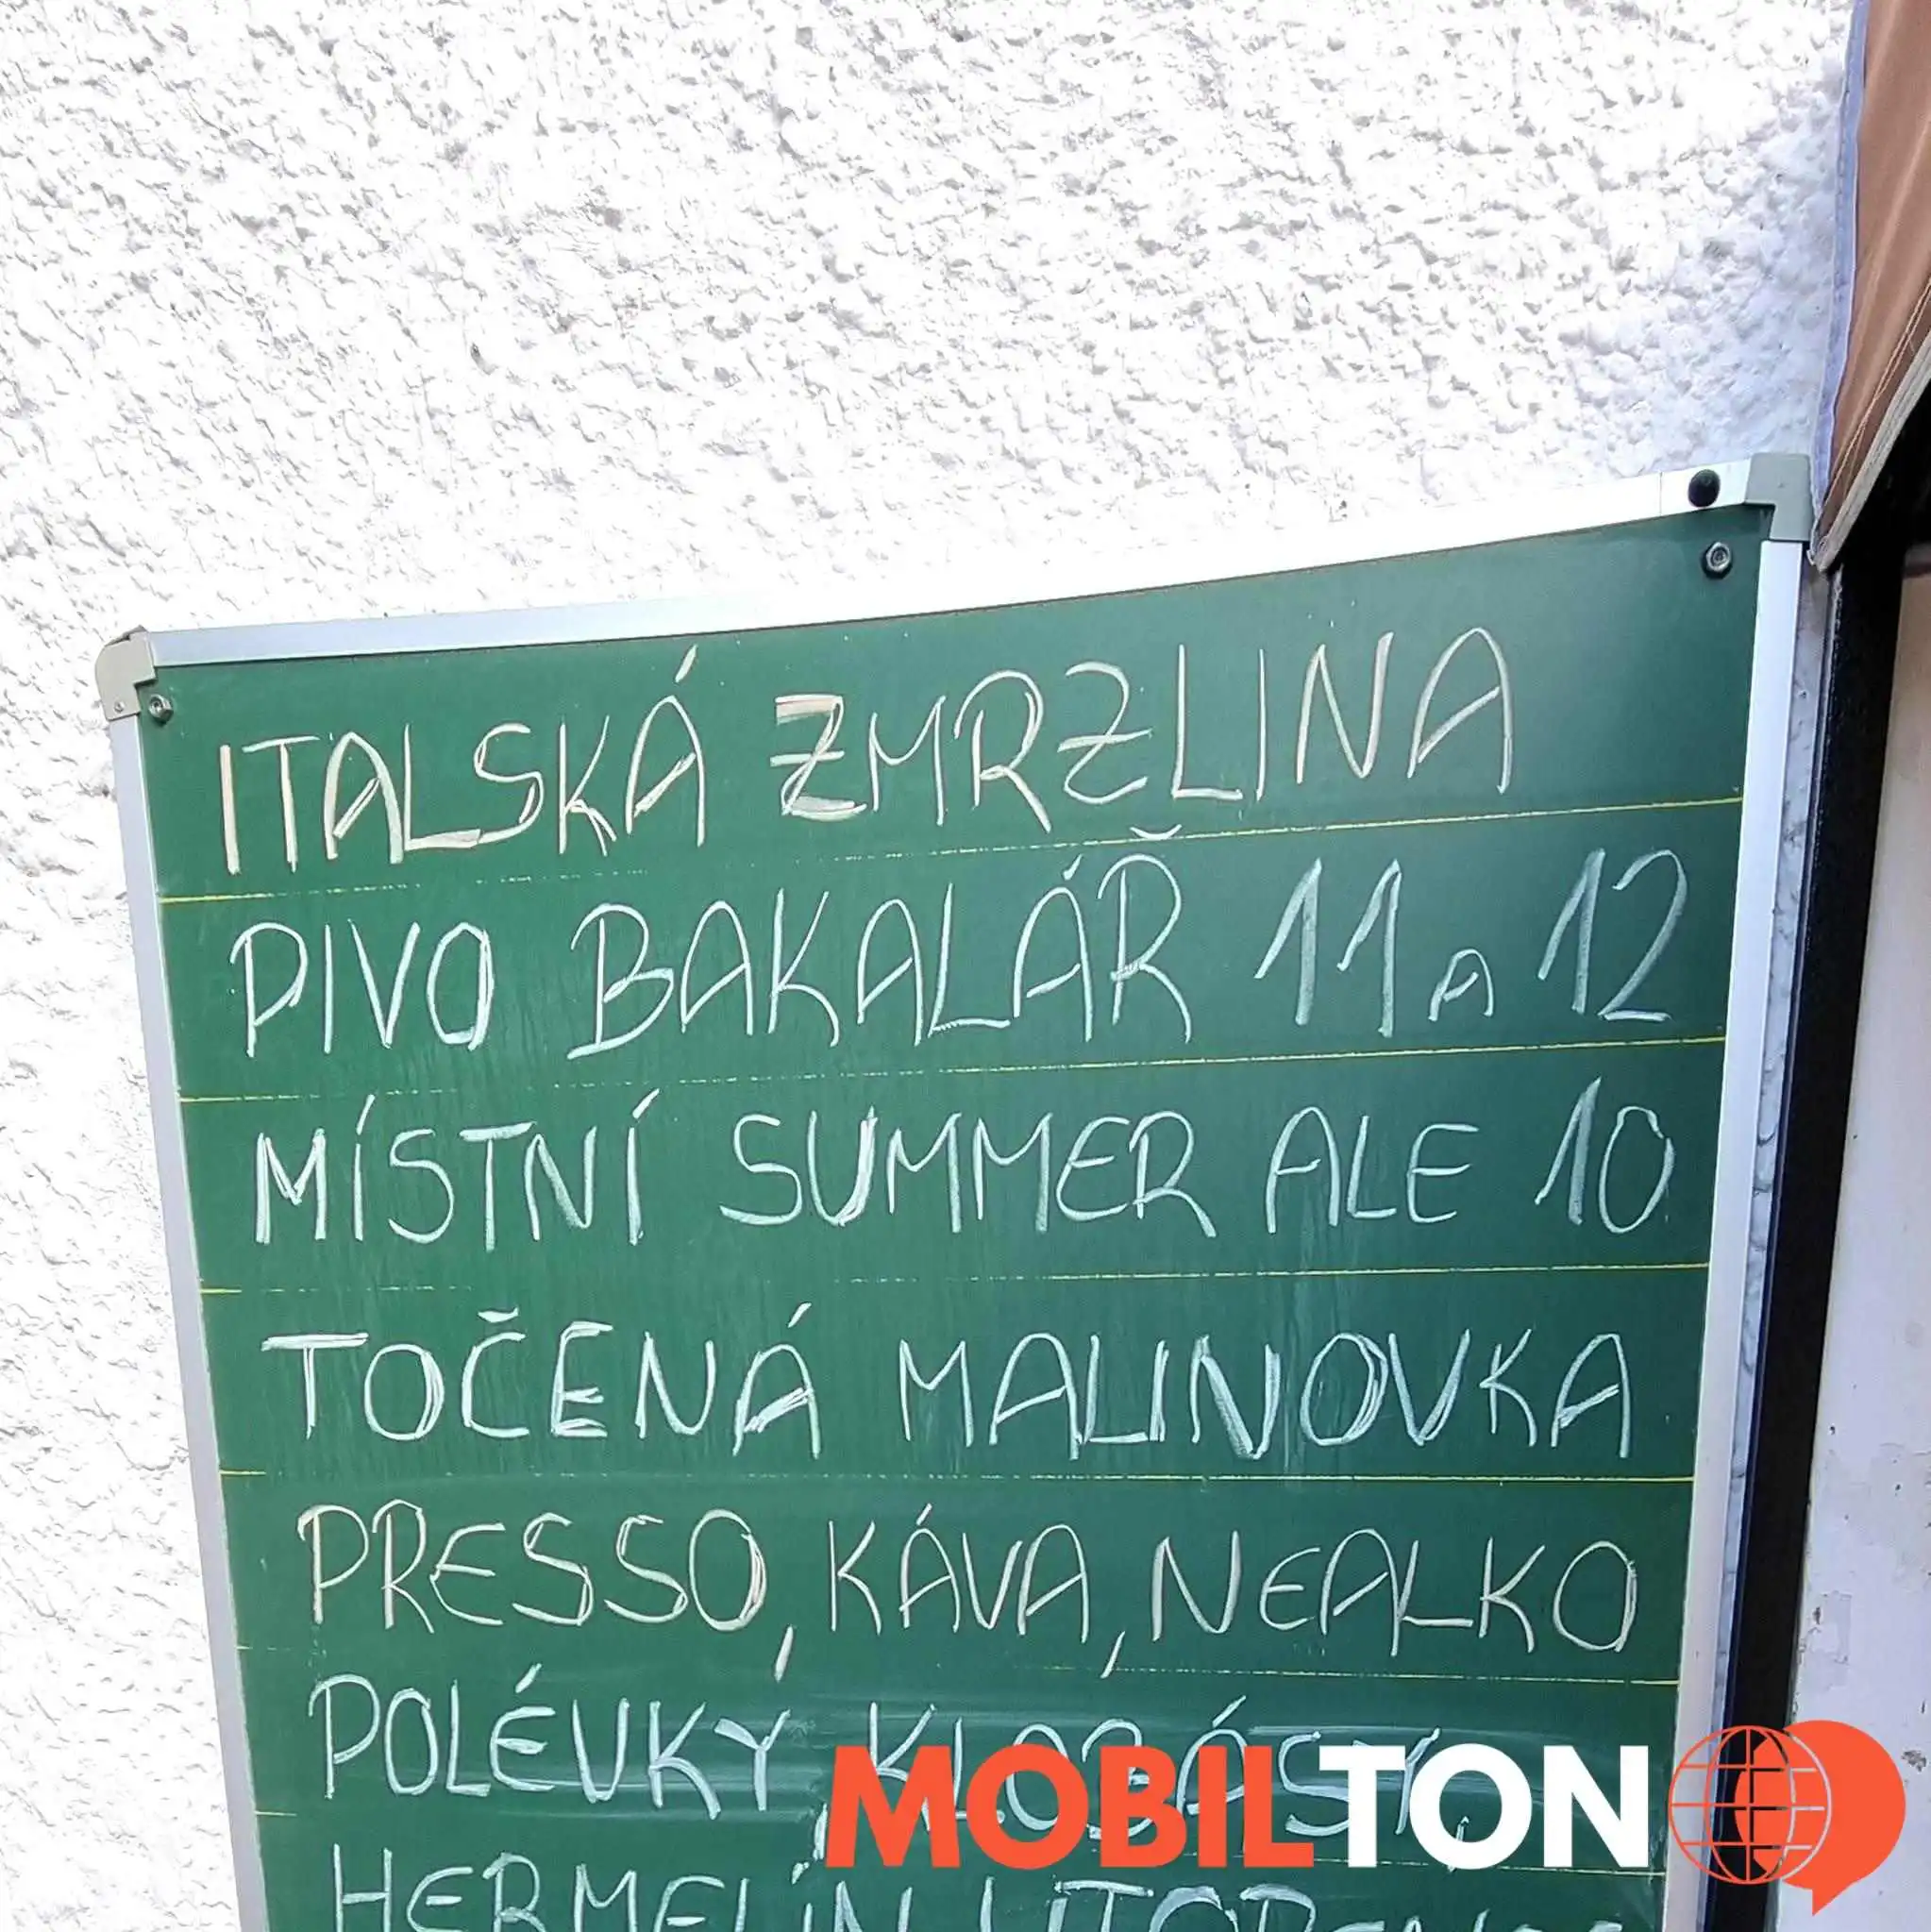 ITALSKÁ ZMRZLINA
PIVO BAKALÁŘ 11 A 12
MÍSTNÍ SUMMER ALE 10
TOČENÁ MALINOVKA
PRESSO, KÁVA, NEALKO
POLÉVKY, KLOBÁSY,
MOBILTON
HERMELÍN